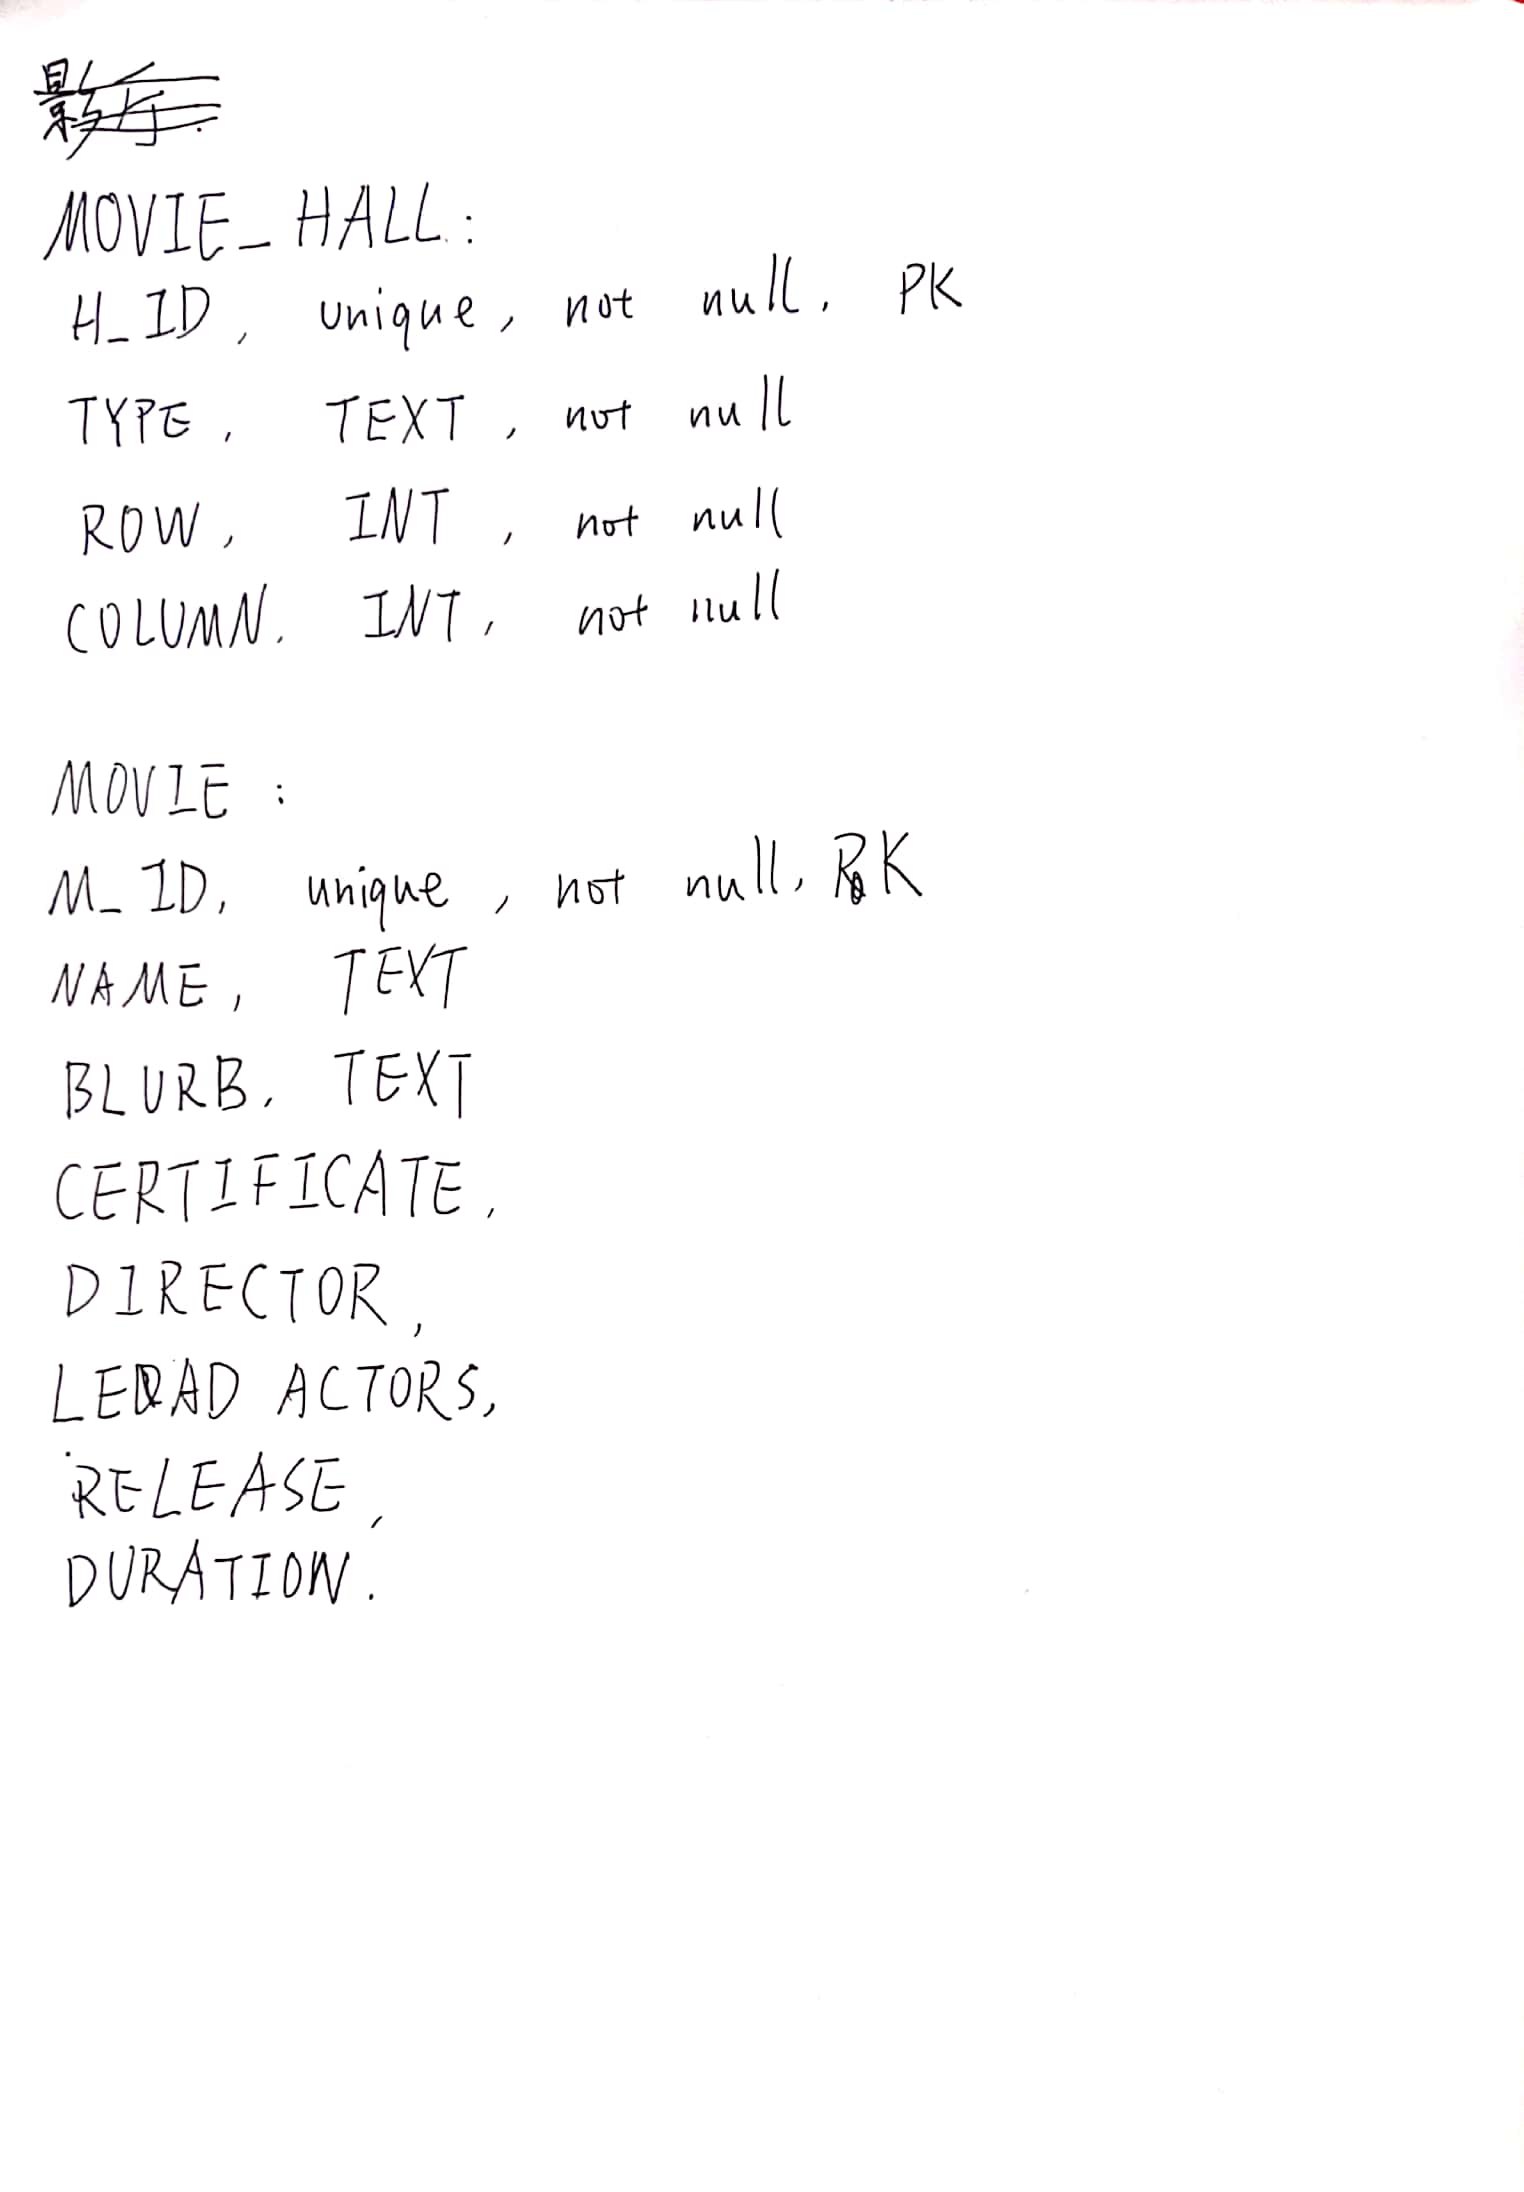 MOVIE_HALL:
H_ID, unique, not null, PK
TYPE, TEXT, not null
ROW, INT, not null
COLUMN, INT, not null
MOVIE:
M_ID, unique, not null, PK
NAME, TEXT
BLURB, TEXT
CERTIFICATE,
DIRECTOR,
LEAD ACTORS,
RELEASE,
DURATION.